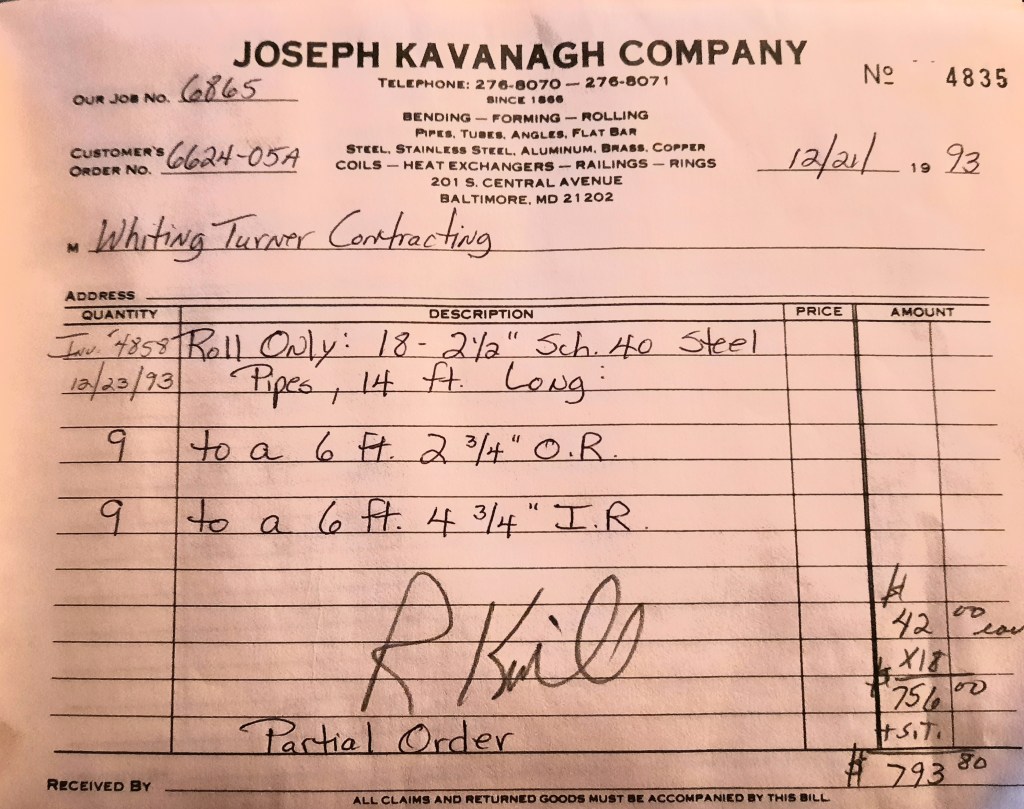 JOSEPH KAVANAGH COMPANY
TELEPHONE: 276-8070 — 276-8071
Nº 4835
OUR JOB NO. 6865
SINCE 1866
BENDING — FORMING — ROLLING
PIPES, TUBES, ANGLES, FLAT BAR
CUSTOMER'S ORDER NO. 6624-05A
STEEL, STAINLESS STEEL, ALUMINUM, BRASS, COPPER
COILS — HEAT EXCHANGERS — RAILINGS — RINGS
12/21/ 19 93
201 S. CENTRAL AVENUE
BALTIMORE, MD 21202
M Whiting Turner Contracting
ADDRESS
QUANTITY DESCRIPTION PRICE AMOUNT
Inv. #4858 Roll Only: 18 - 2 1/2" Sch. 40 Steel
12/23/93 Pipes, 14 ft. Long:
9 to a 6 ft. 2 3/4" O.R.
9 to a 6 ft. 4 3/4" I.R.
$
42 00
X18
$ 756 00
Partial Order + S.T.
$ 793 80
RECEIVED BY
ALL CLAIMS AND RETURNED GOODS MUST BE ACCOMPANIED BY THIS BILL